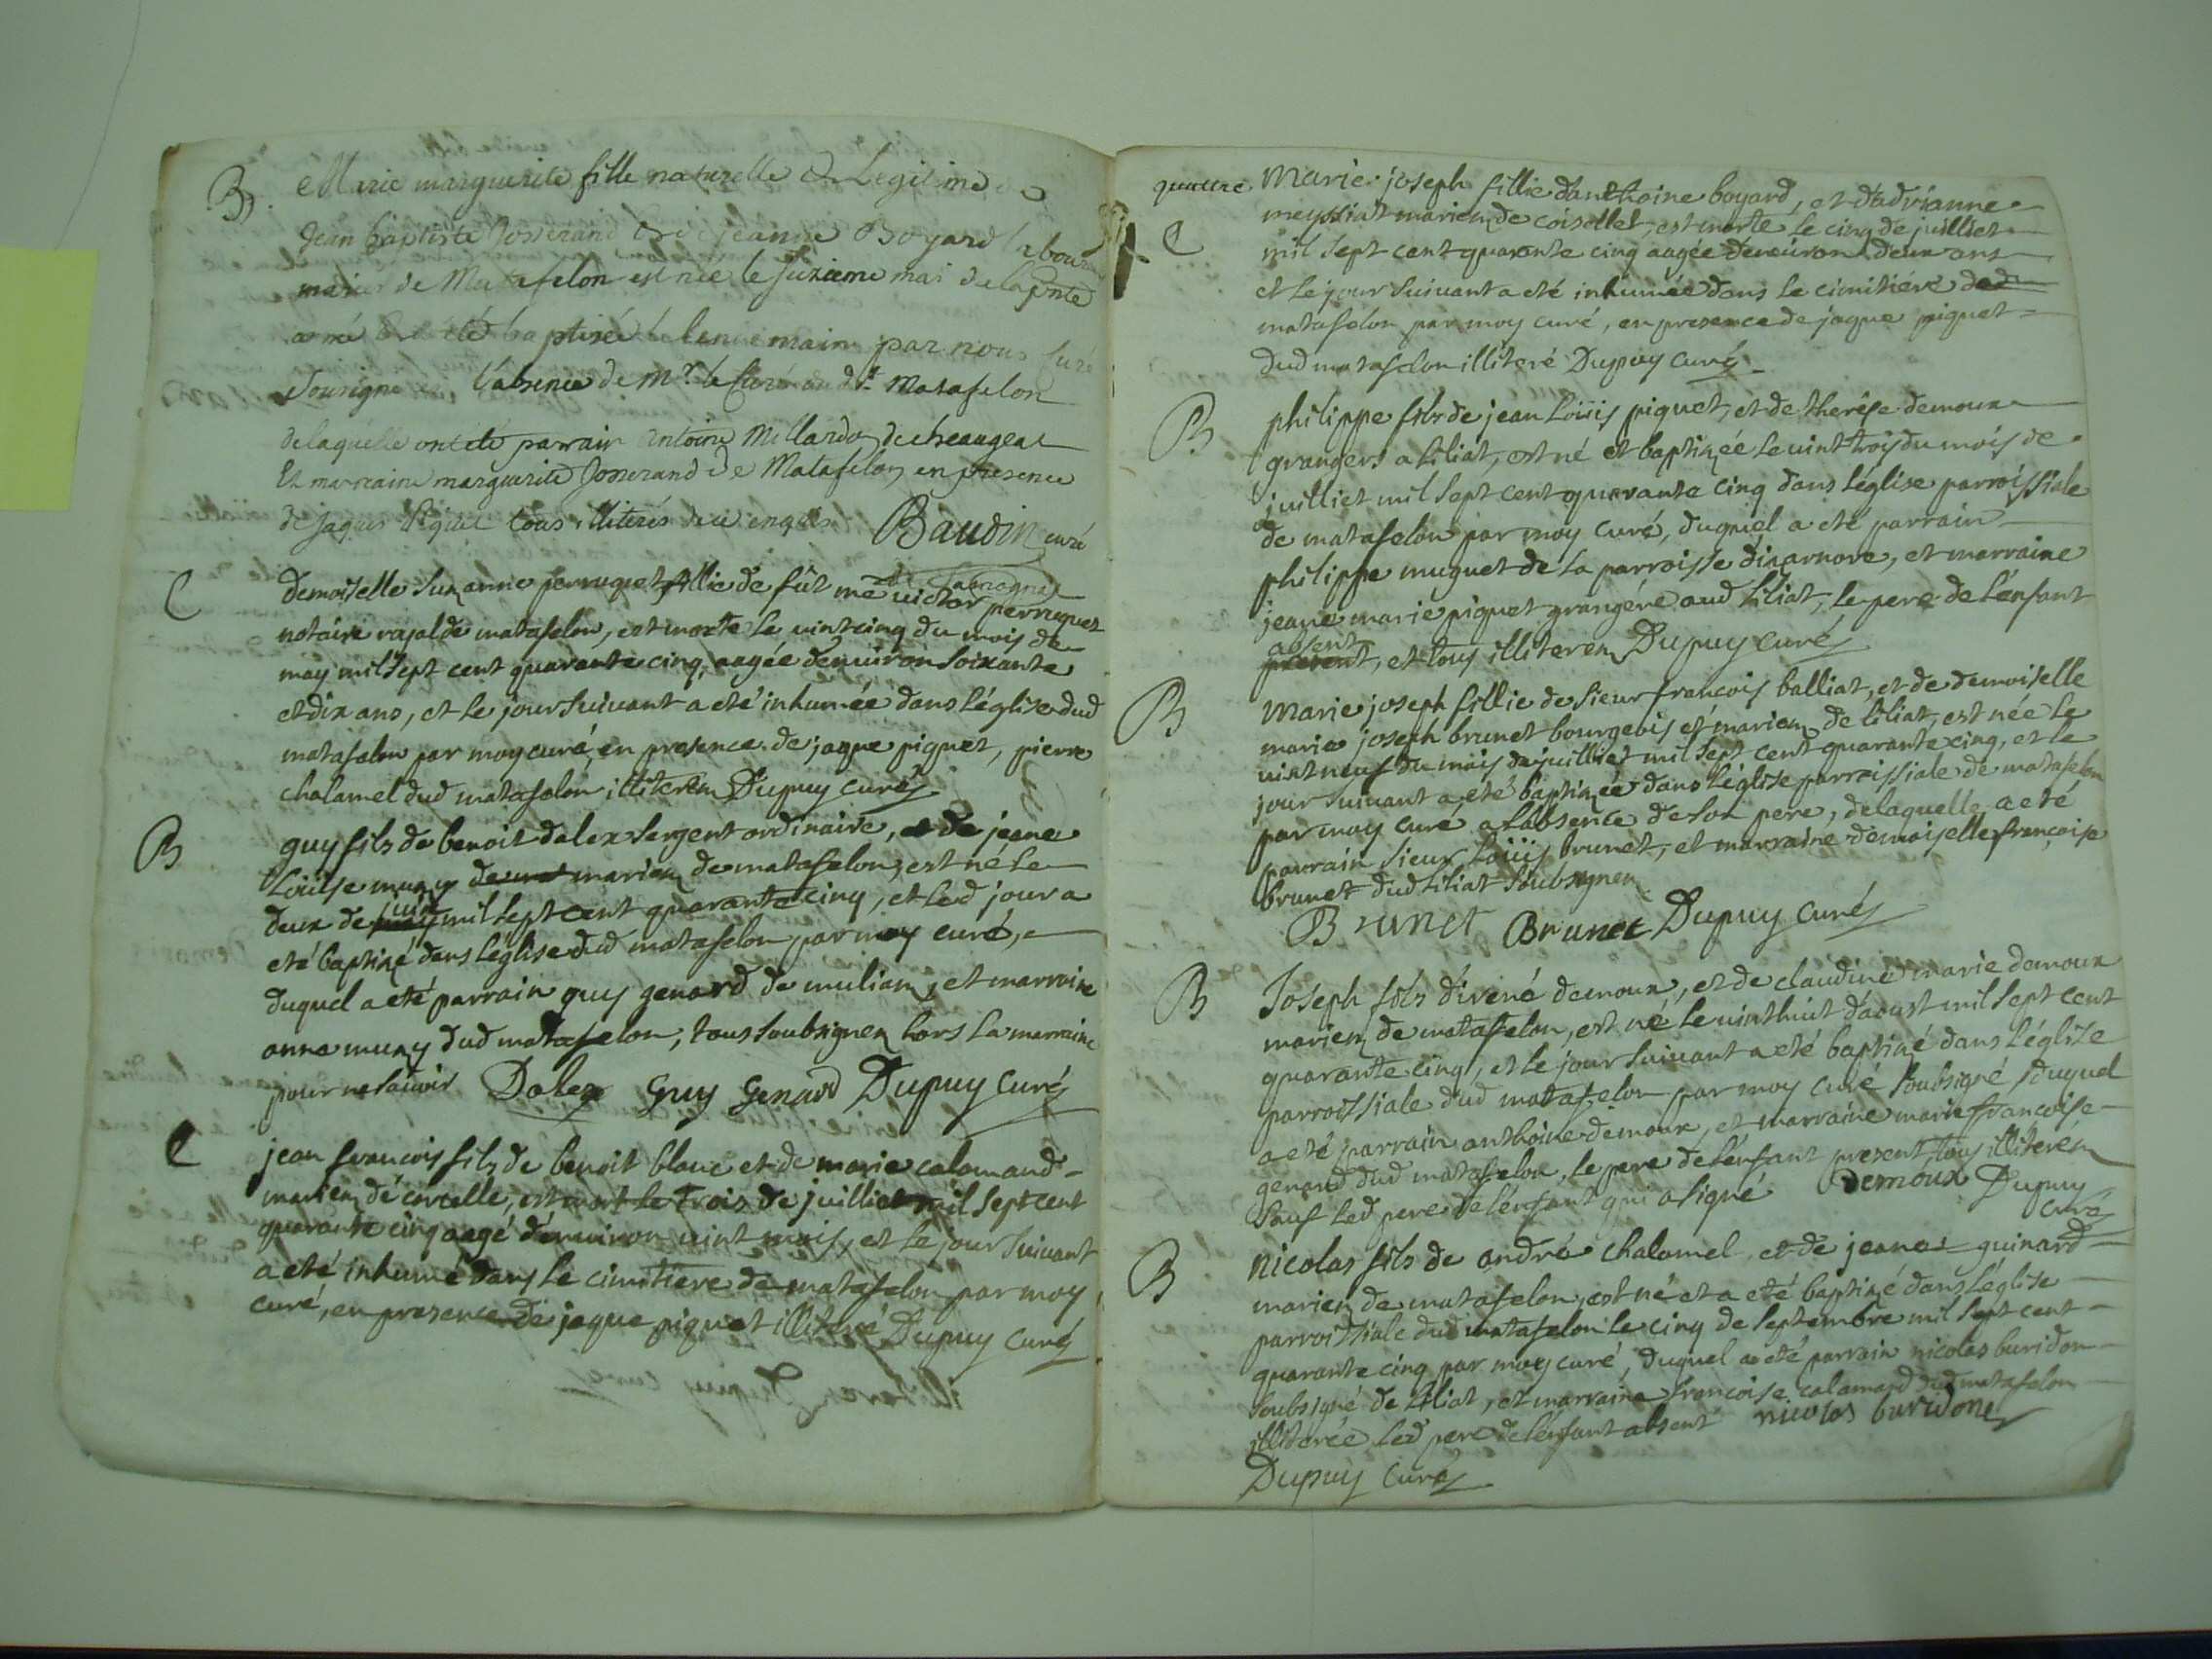 B. Marie marguerite fille naturelle & Legitime de
Jean baptiste Josserand & de jeanne Boyard laboureur
mariés de Matafelon est née le sixieme mai de la pnte
année & a été baptisée le lendemain par nous Curé
sousigné en l'absence de Mr. le Curé dud.t Matafelon
de laquelle ont été parrain antoine Millardo de heaugeat
Et marraine marguerite Josserand de Matafelon en presence
de Jaques Piquet tous illiterés de ce enquis Baudin curé
C demoiselle suzanne perruquet fillie de fût me victor perruquet
notaire rajal de matafelon, est morte le vint cinq du mois de
may mil sept cent quarante cinq, aagée denuiron soixante
et dix ans, et le jour suivant a eté inhumée dans léglise dud
matafelon par moy curé, en presence de jaque piquet, pierre
chalamel dud matafelon illiterez Dupuy curé
B guy fils de benoit dalex sergent ordinaire, et de jeane
Loüise muzy de mat mariez de matafelon, est né le
deux de may juin mil sept cent quarante cinq, et led jour a
eté baptizé dans léglise dud matafelon par moy curé,
duquel a eté parrain guy genard de muliam, et marraine
anne muzy dud matafelon, tous soubsignez hors la marraine
pour ne sçavoir Dalex Guy Genard Dupuy curé
C jean francois fils de benoit blanc et de marie calamand
mariez de corcelle, est mort le trois de juilliet mil sept cent
quarante cinq aagé d'enuiron vint mois, et le jour suivant
a eté inhumé dans le cimitiere de matafelon par moy
curé, en presence de jaque piquet illiteré Dupuy curé
quatre Marie joseph fillie danthoine boyard, et dadrianne
C meyssiat mariez de coisellet, est morte le cinq de juilliet
mil sept cent quarante cinq aagée denuiron deux ans
et le jour suivant a eté inhumée dans le cimitiére ded
matafelon par moy curé, en presence de jaque piquet
dud matafelon illiteré Dupuy curé
B philippe fils de jean Loüis piquet, et de therése demoux
grangers a liliat, est né et baptizée le vint trois du mois de
juilliet mil sept cent quarante cinq dans léglise parroissiale
de matafelon par moy curé, duquel a eté parrain
philippe muguet de la parroisse dizarnore, et marraine
jeane marie piquet grangére aud liliat, le pere de lénfant
absent
present, et tous illiterez Dupuy curé
B Marie joseph fillie de sieur francois balliat, et de demoiselle
marie joseph brunet bourgeois et mariez de liliat, est née le
vint neuf du mois de juilliet mil sept cent quarante cinq, et le
jour suivant a eté baptizée dans léglise parroissiale de matafelon
par moy curé a labsence de son pere, delaquelle a eté
parrain sieur Loüis brunet, et marraine demoiselle françoise
brunet dud liliat soubsignez
Brunet Brunet Dupuy curé
B Joseph fils d'irené demoux, et de claudine marie demoux
mariez de matafelon, est né le vint huit d'aoust mil sept cent
quarante cinq, et le jour suivant a eté baptizé dans léglise
parroissiale dud matafelon par moy curé soubsigné, duquel
a eté parrain anthoine demoux, et marraine marie francoise
genard dud matafelon, le pere de lénfant present, tous illiterez
sauf led pere de lénfant qui a signé Demoux Dupuy
curé
B nicolas fils de andré chalamel et de jeane guinard
mariez de matafelon, est né et a eté baptizé dans léglise
parroissiale dud matafelon le cinq de septembre mil sept cent
quarante cinq par moy curé, duquel a eté parrain nicolas buridon
soubsigné de liliat, et marraine francoise calamard dud matafelon
illiterée led pere de lénfant absent nicolas buridone
Dupuy curé